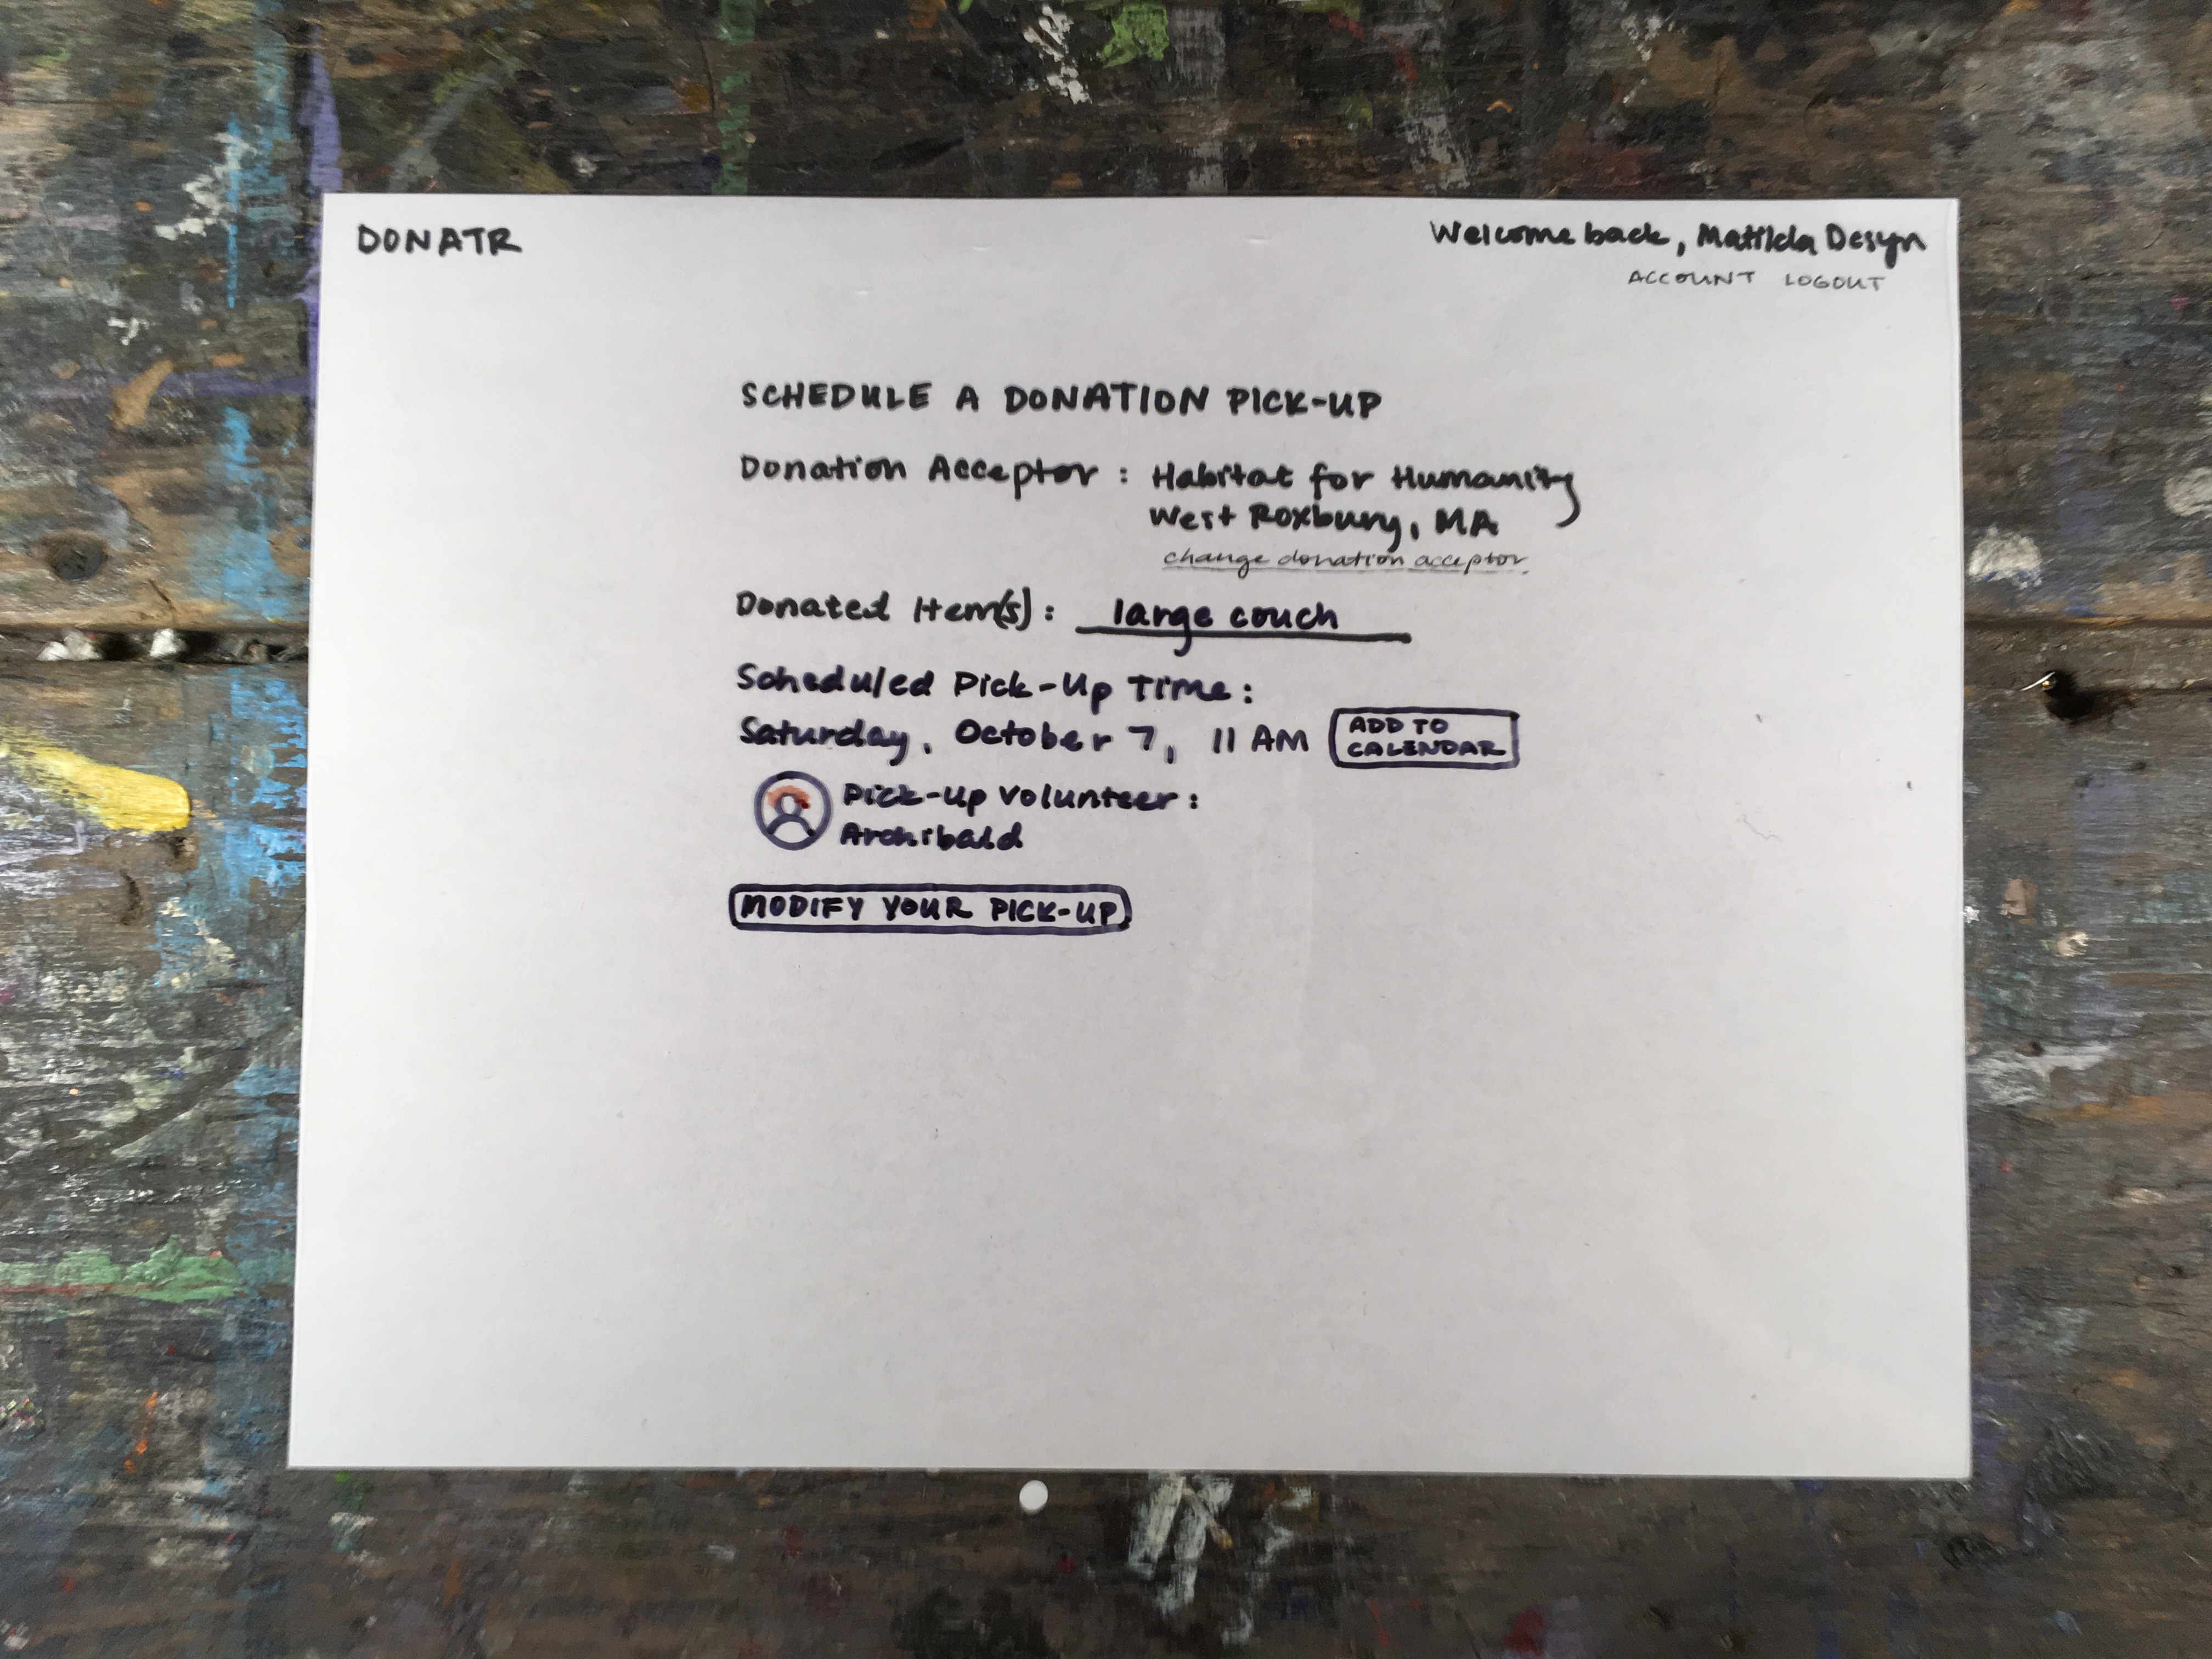 DONATR
Welcome back, Matilda Desyn
ACCOUNT LOGOUT
SCHEDULE A DONATION PICK-UP
Donation Acceptor: Habitat for Humanity
West Roxbury, MA
change donation acceptor
Donated Item(s): large couch
Scheduled Pick-Up Time:
Saturday, October 7, 11 AM
ADD TO
CALENDAR
Pick-up Volunteer:
Archibald
MODIFY YOUR PICK-UP